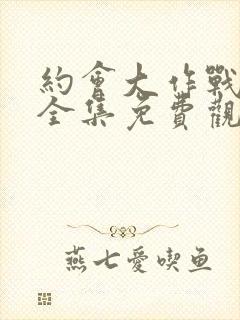 約會大作戰
全集免費觀
燕七愛喫鱼